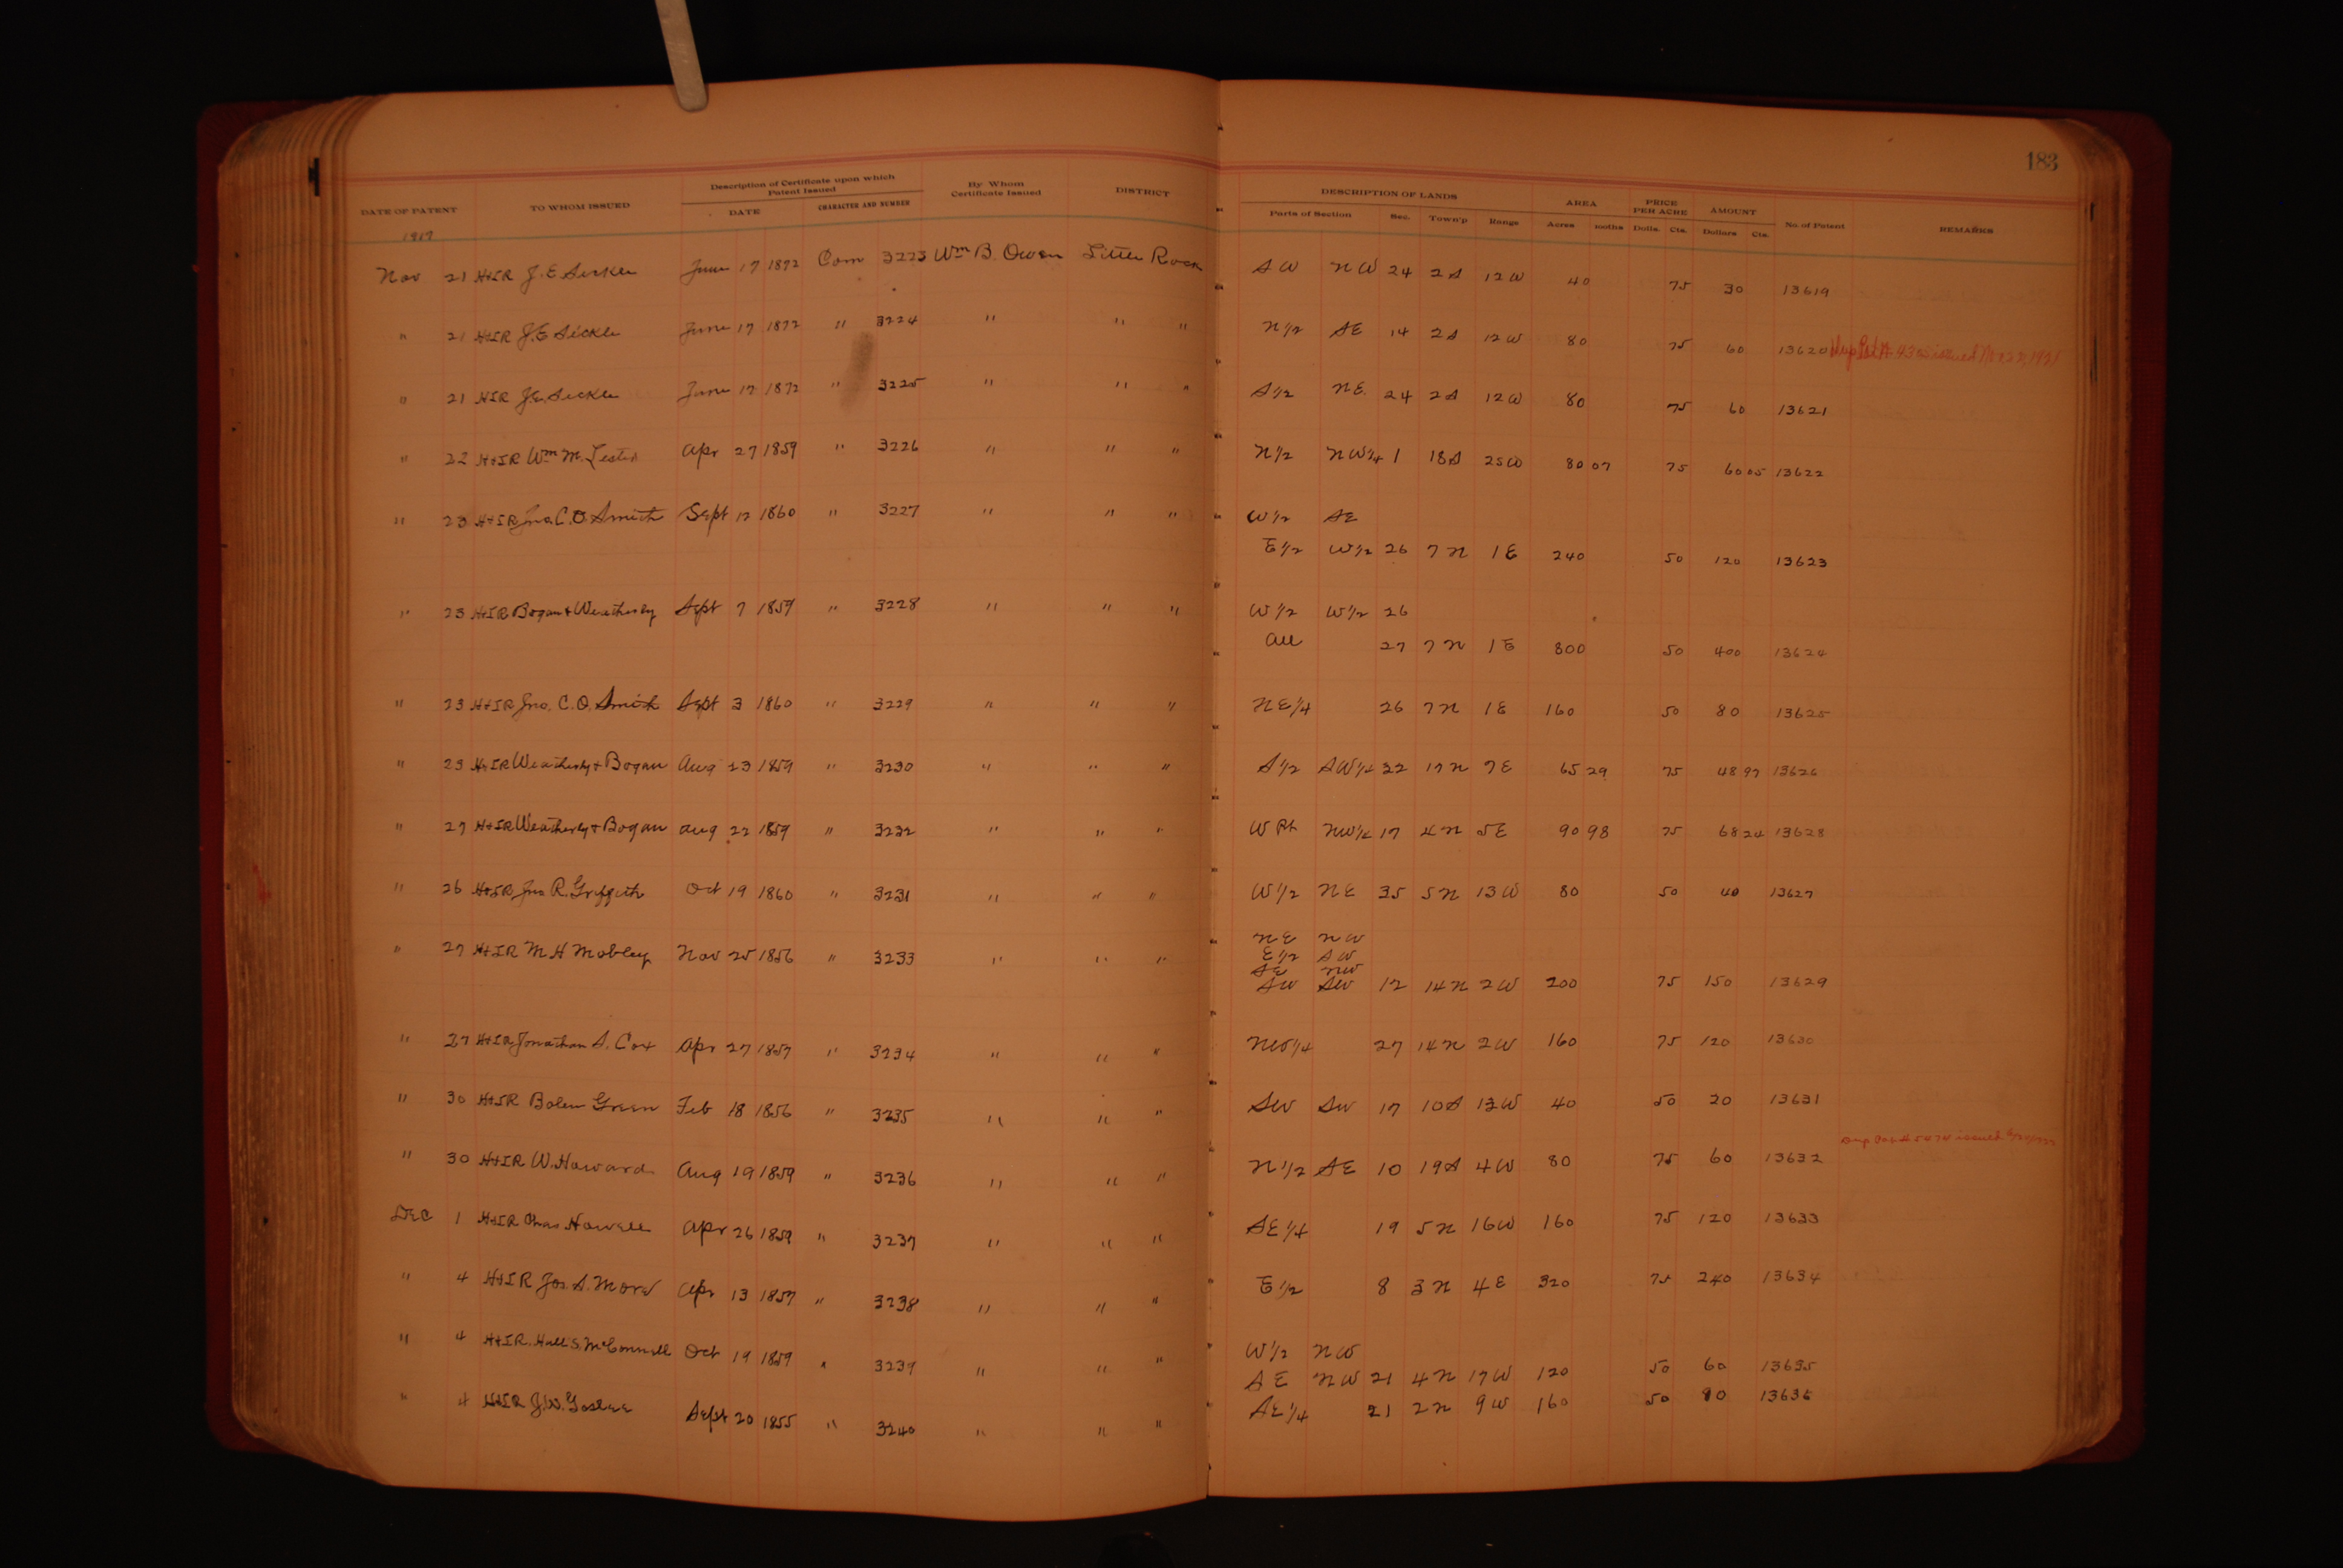 183
Description of Certificate upon which Patent Issued By Whom Certificate Issued DISTRICT DESCRIPTION OF LANDS AREA PRICE PER ACRE AMOUNT
DATE OF PATENT TO WHOM ISSUED DATE CHARACTER AND NUMBER Parts of Section Sec. Town'p Range Acres 100ths Dolls. Cts. Dollars Cts. No. of Patent REMARKS
1917
Nov 21 H&IR J.E Sickle June 17 1872 Com 3223 Wm B. Owen Little Rock SW NW 24 2S 12W 40 75 30 13619
" 21 H&IR J.E Sickle June 17 1872 " 3224 " " " N1/2 SE 14 2S 12W 80 75 60 13620 Dup Pat # issued
" 21 HIR J.E. Sickle June 17 1872 " 3225 " " " S1/2 NE 24 2S 12W 80 75 60 13621
" 22 H&IR Wm M. Lester Apr 27 1859 " 3226 " " " N1/2 NW1/4 1 18S 25W 80 07 75 60 05 13622
" 23 H&IR Jno. C. O. Smith Sept 12 1860 " 3227 " " " W1/2 SE
E1/2 W1/2 26 7N 1E 240 50 120 13623
" 23 H&IR Bogan & Weatherby Sept 7 1859 " 3228 " " " W1/2 W1/2 26
All 27 7N 1E 800 50 400 13624
" 23 H&IR Jno. C. O. Smith Sept 3 1860 " 3229 " " " NE1/4 26 7N 1E 160 50 80 13625
" 23 H&IR Weatherby & Bogan Aug 23 1859 " 3230 " " " S1/2 SW1/4 22 17N 7E 65 29 75 48 97 13626
" 27 H&IR Weatherby & Bogan Aug 22 1859 " 3232 " " " W Pt NW1/4 17 4N 5E 90 98 75 68 24 13628
" 26 H&IR Jno R. Griffith Oct 19 1860 " 3231 " " " W1/2 NE 35 5N 13W 80 50 40 13627
" 27 H&IR M H Mobley Nov 25 1856 " 3233 " " " NE NW
E1/2 SW
SE NW
SW SW 12 14N 2W 200 75 150 13629
" 27 H&IR Jonathan S. Cox Apr 27 1857 " 3234 " " " NW1/4 27 14N 2W 160 75 120 13630
" 30 H&IR Bolen Green Feb 18 1856 " 3235 " " " SW SW 17 10S 13W 40 50 20 13631
Dup Pat # 5474 issued
" 30 H&IR W. Howard Aug 19 1859 " 3236 " " " N1/2 SE 10 19S 4W 80 75 60 13632
Dec 1 H&IR Chas Howell Apr 26 1859 " 3237 " " " SE1/4 19 5N 16W 160 75 120 13633
" 4 H&IR Jos. S. More Apr 13 1857 " 3238 " " " E1/2 8 3N 4E 320 75 240 13634
" 4 H&IR. Hall S. McConnell Oct 19 1859 " 3239 " " " W1/2 NW
SE NW 21 4N 17W 120 50 60 13635
" 4 H&IR J.W. Goslee Sept 20 1855 " 3240 " " " SE1/4 21 2N 9W 160 50 80 13636